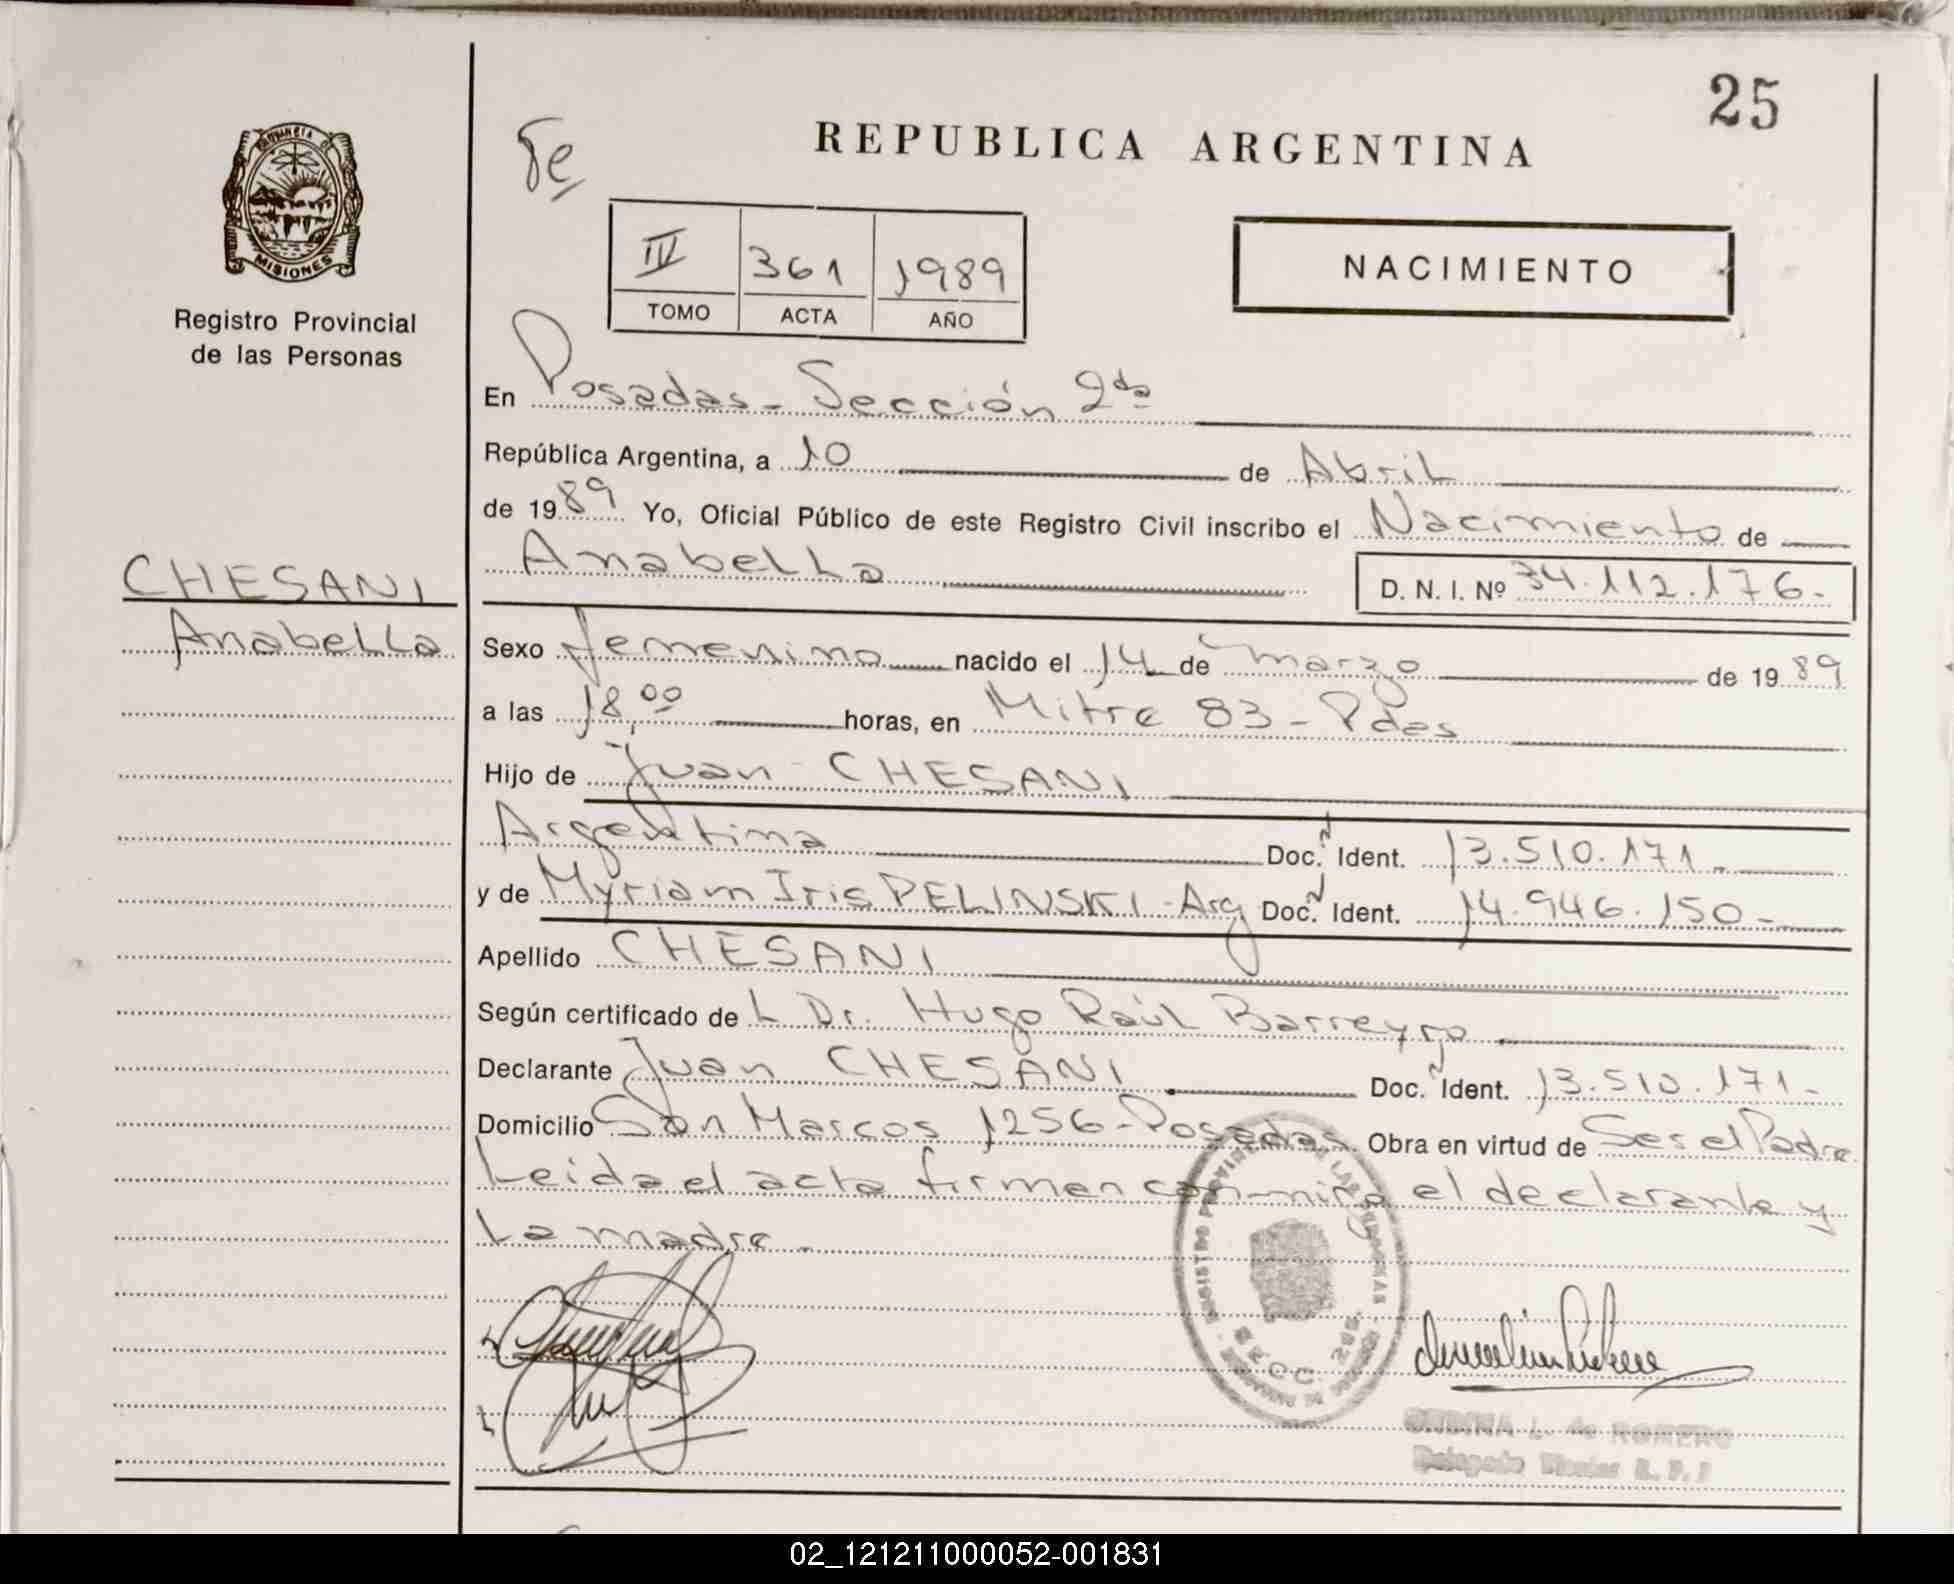 25
REPUBLICA ARGENTINA
PROVINCIA DE
MISIONES
Registro Provincial
de las Personas
IV 361 1989
TOMO ACTA AÑO
NACIMIENTO
En Posadas - Sección 2da
República Argentina, a 10 de Abril
de 1989 Yo, Oficial Público de este Registro Civil inscribo el Nacimiento de
Anabella D. N. I. Nº 34.112.176.-
CHESANI
Anabella
Sexo femenino nacido el 14 de marzo de 1989
a las 18,00 horas, en Mitre 83 - Pdas
Hijo de Juan CHESANI
Argentina Doc. Ident. 13.510.171.-
y de Myriam Iris PELINSKI - Arg Doc. Ident. 14.946.150.-
Apellido CHESANI
Según certificado de L Dr. Hugo Raúl Barreyro
Declarante Juan CHESANI Doc. Ident. 13.510.171.-
Domicilio San Marcos 1256 - Posadas Obra en virtud de Ser el Padre
Leida el acta firman con-migo el declarante y
La madre.-
REGISTRO PROVINCIAL DE LAS PERSONAS
SECC. 2da
L. de ROMERO
02_121211000052-001831